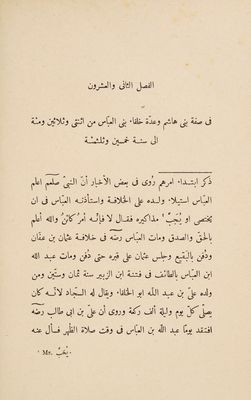 الفصل الثانى والعشرون
فى صفة بنى هاشم وعدّة خلفاء بنى العبّاس من اثنتى وثلاثين ومئة
الى سنة خمسين وثلثمئة
ذكر ابتداء امرهم روى فى بعض الأخبار أنّ النبىّ صلعم اعلم
العبّاس استيلاء ولده على الخلافة واستأذنه العبّاس فى ان
يختصى او يَجُبّ¹ مذاكيره فقال لا فإنّه امر كائن والله أعلم
بالحقّ والصدق ومات العبّاس رضه فى خلافة عثمان بن عفّان
ودُفن بالبقيع وجلس عثمان على قبره حتى دُفن ومات عبد الله
ابن العبّاس بالطائف فى فتنة ابن الزبير سنة ثمان وستّين ومن
ولده علىّ بن عبد الله ابو الخلفاء ويقال له السجّاد لأنّه كان
يصلّى كلّ يوم وليلة ألف ركعة وروى أن علىّ بن ابى طالب رضه
افتقد يومًا عبد الله بن العبّاس فى وقت صلاة الظهر فسأل عنه
¹ Ms. يُجَبّ.